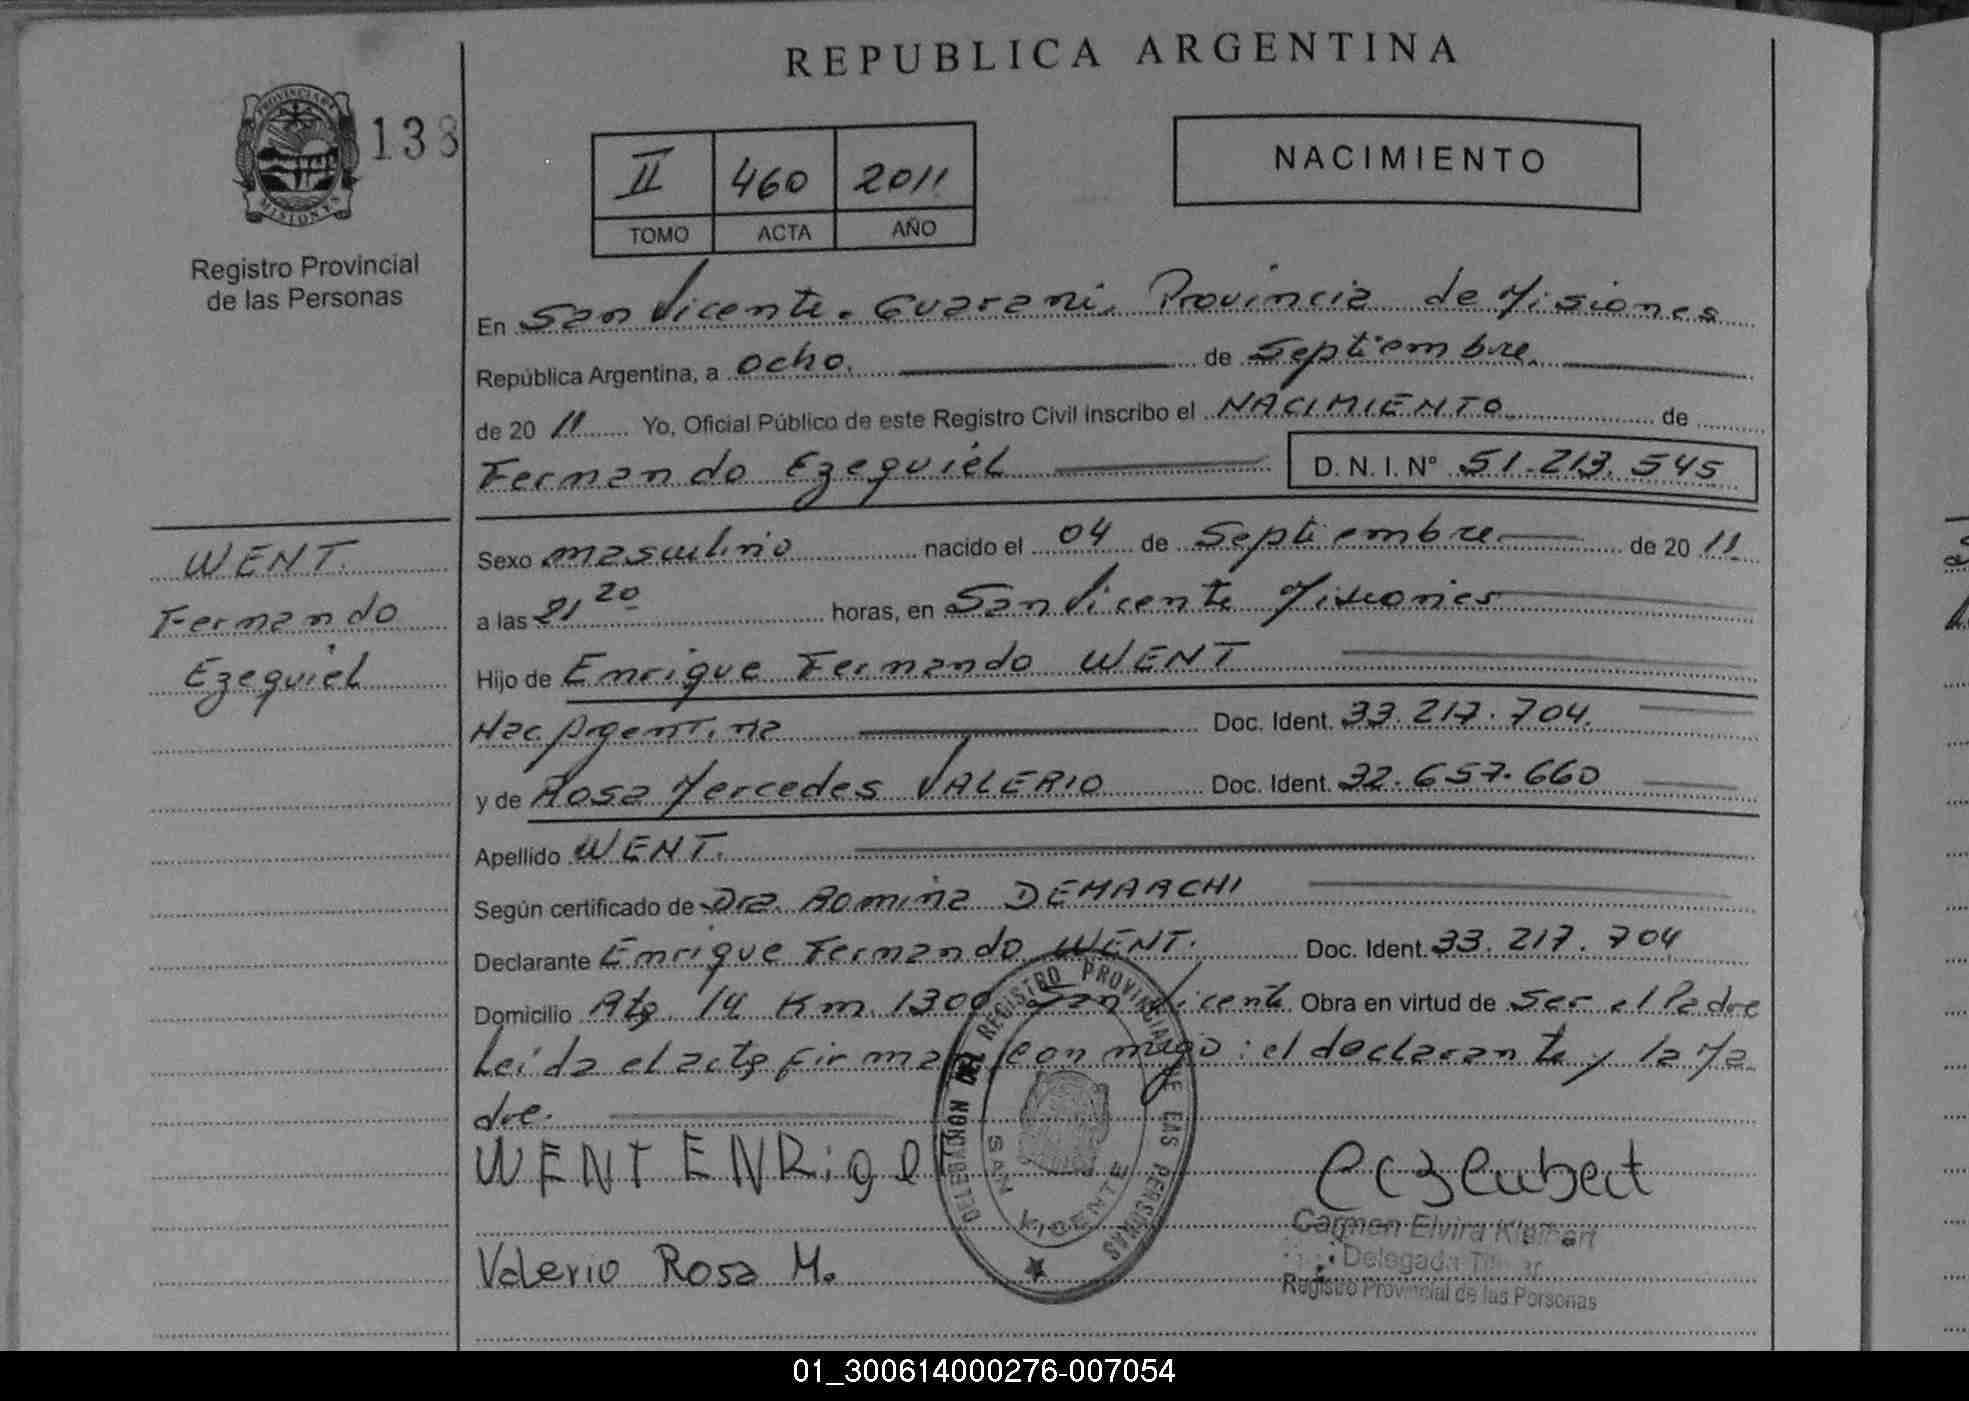 REPUBLICA ARGENTINA
PROVINCIA DE
MISIONES
138
Registro Provincial
de las Personas
II 460 2011
TOMO ACTA AÑO
NACIMIENTO
En San Vicente. Guaraní, Provincia de Misiones
República Argentina, a ocho. de Septiembre.
de 20 11 Yo, Oficial Público de este Registro Civil inscribo el NACIMIENTO de
Fernando Ezequiel D. N. I. N° 51.213.545
WENT.
Fernando
Ezequiel
Sexo masculino nacido el 04 de Septiembre de 20 11
a las 21 20 horas, en San Vicente Misiones
Hijo de Enrique Fernando WENT
Nac Argentina Doc. Ident. 33.217.704.
y de Rosa Mercedes VALERIO Doc. Ident. 32.657.660
Apellido WENT.
Según certificado de Dra. Romina DEMARCHI
Declarante Enrique Fernando WENT. Doc. Ident. 33.217.704
Domicilio Rta 14 Km 1300 San Vicente Obra en virtud de ser el Padre
Leída el acta firman con migo: el declarante y la Ma
dre.
WENT ENRiqe
Valerio Rosa M.
DELEGACION DEL REGISTRO PROVINCIAL DE LAS PERSONAS
SAN VICENTE
Carmen Elvira
Delegada
Registro Provincial de las Personas
01_300614000276-007054